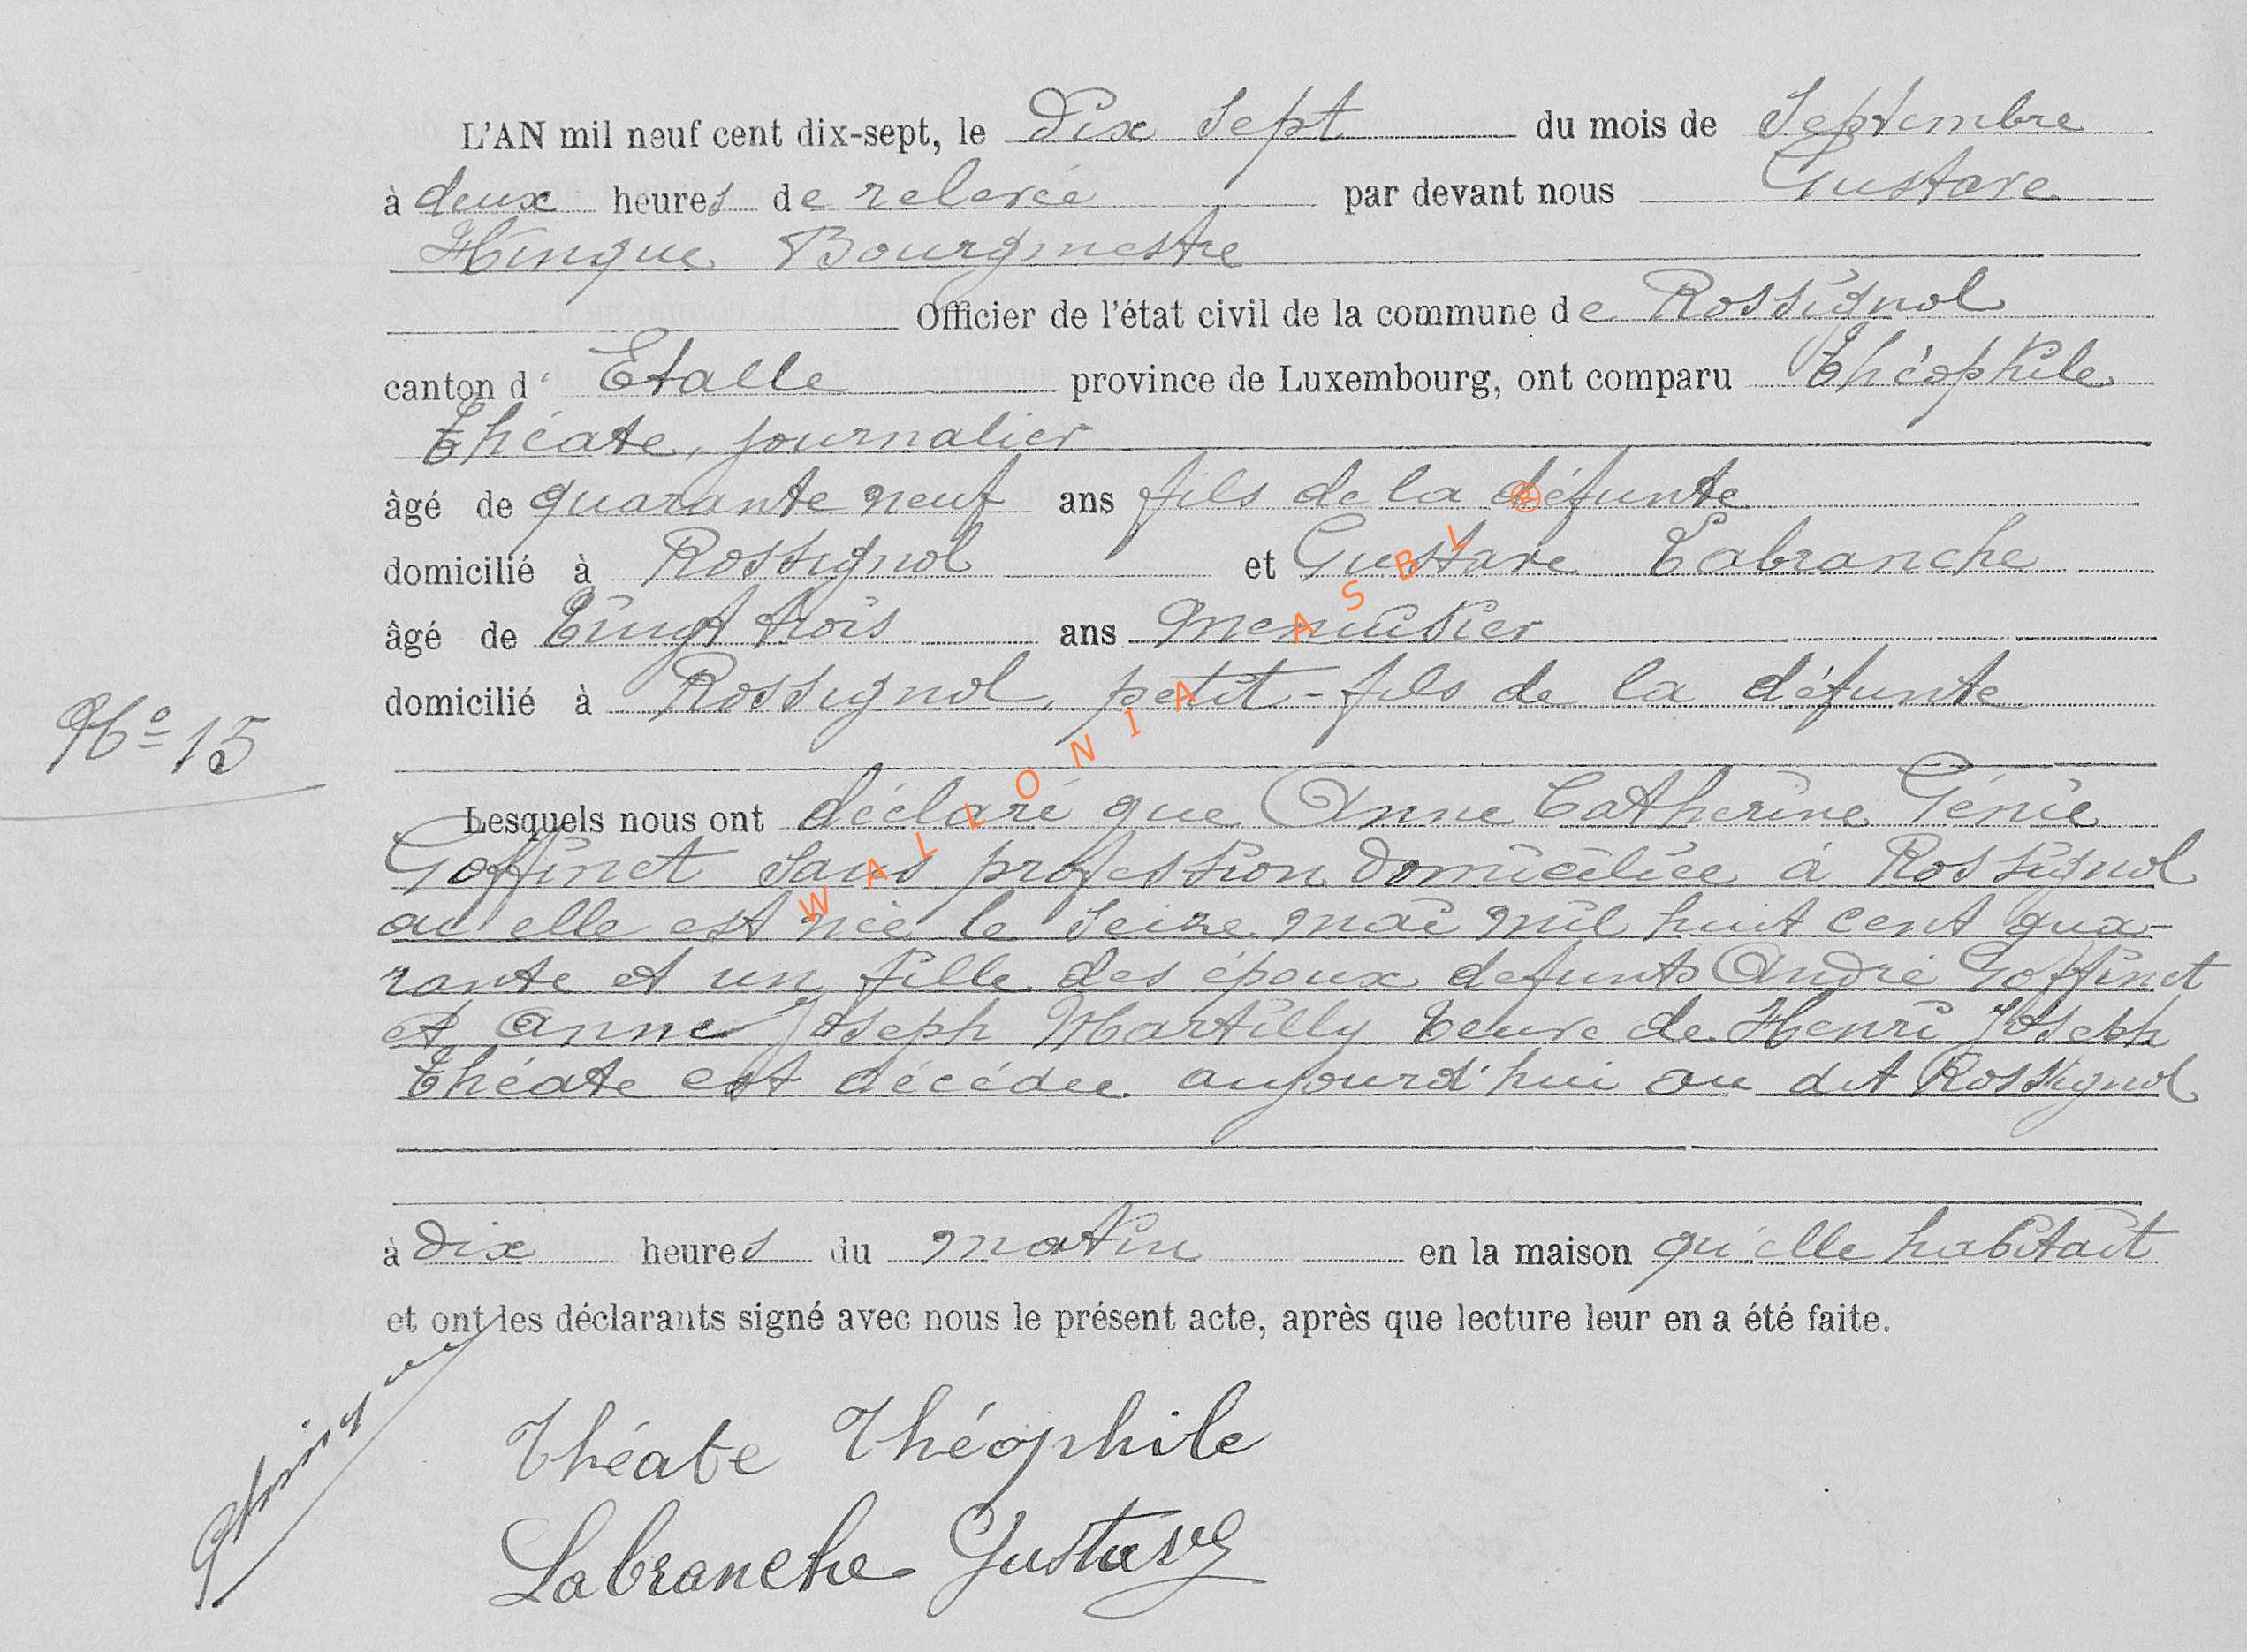 L'AN mil neuf cent dix-sept, le Dix Sept du mois de Septembre
à deux heures de relevée par devant nous Gustave
Hinque Bourgmestre
Officier de l'état civil de la commune de Rossignol
canton d' Etalle province de Luxembourg, ont comparu Théophile
Théate, journalier
âgé de quarante neuf ans fils de la défunte
domicilié à Rossignol et Gustave Labranche
âgé de Vingt trois ans menuisier
domicilié à Rossignol, petit-fils de la défunte
No 15
Lesquels nous ont déclaré que Anne Catherine Génie
Goffinet sans profession domiciliée à Rossignol
ou elle est née le seize mai mil huit cent qua-
rante et un fille des époux defunts André Goffinet
et Anne Joseph Martilly Veuve de Henri Joseph
Théate est décédée aujourd'hui au dit Rossignol
à dix heures du matin en la maison qu'elle habitait
et ont les déclarants signé avec nous le présent acte, après que lecture leur en a été faite.
Théate Théophile
Labranche Gustave
WALLONIA ASBL ®